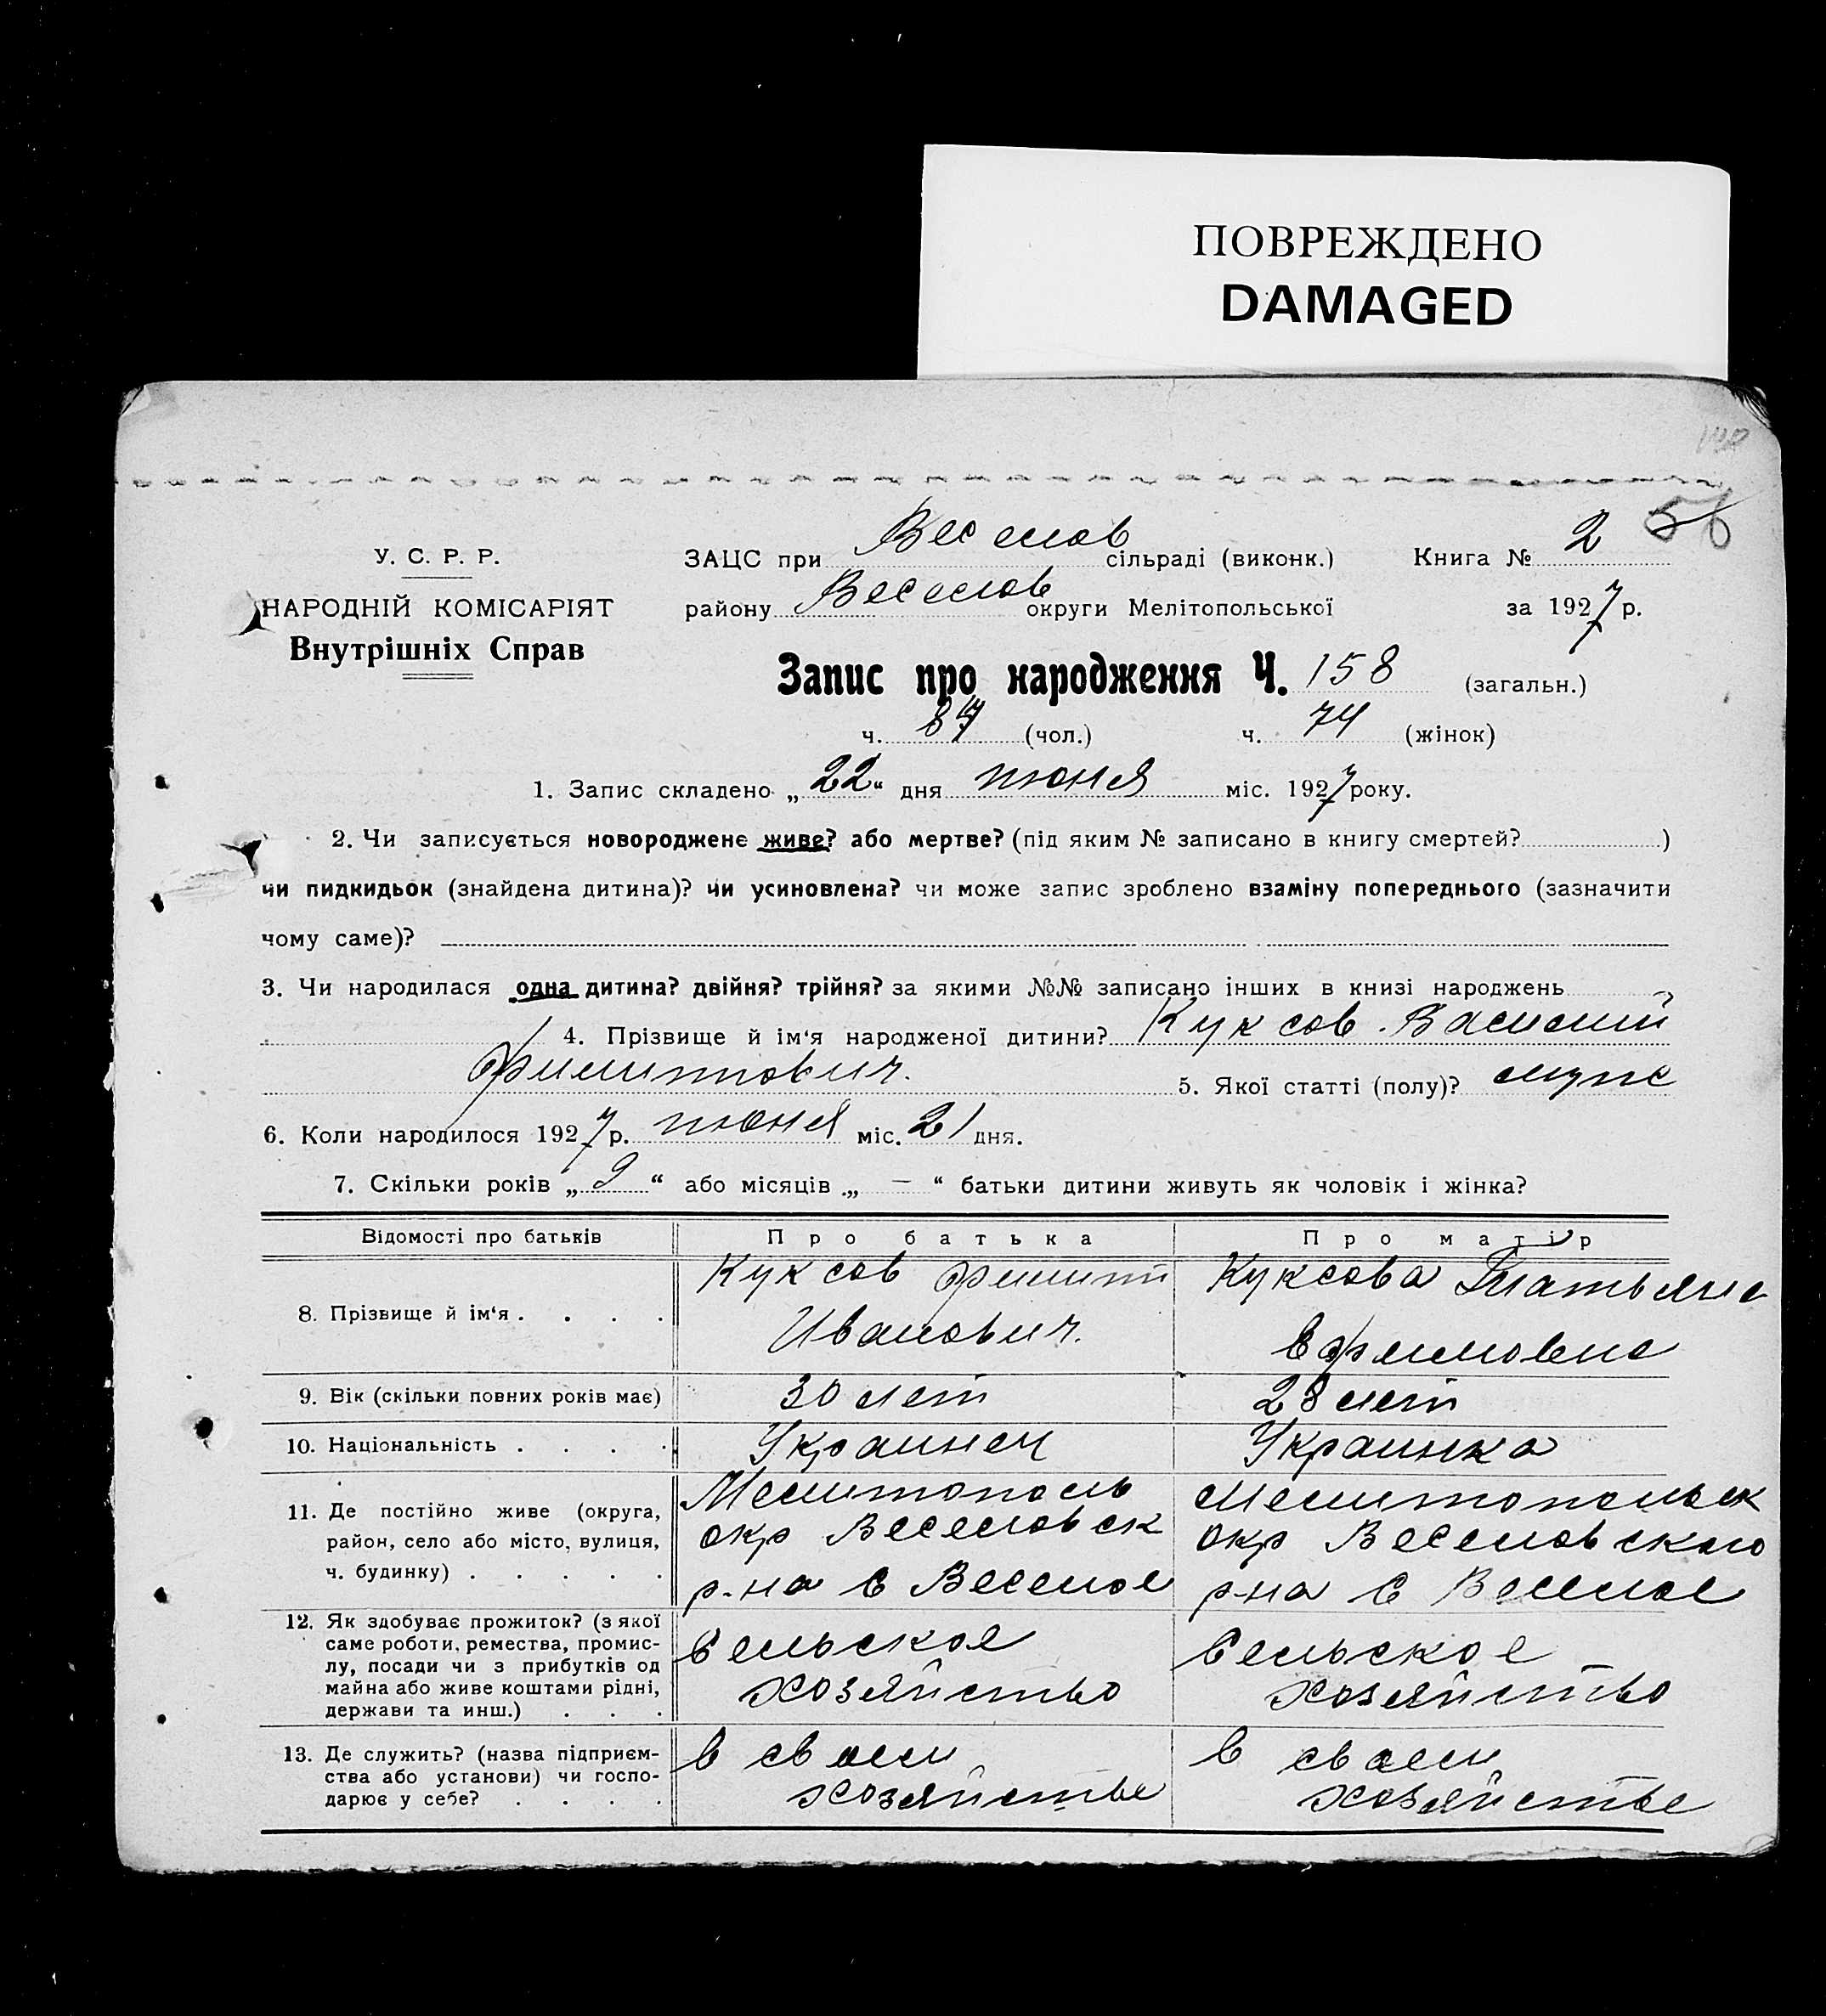 ПОВРЕЖДЕНО
DAMAGED
56
У. С. Р. Р.
НАРОДНІЙ КОМІСАРІЯТ
Внутрішніх Справ
ЗАЦС при Веселов сільраді (виконк.) Книга № 2
району Веселов округи Мелітопольської за 1927 р.
Запис про народження Ч. 158 (загальн.)
ч. 87 (чол.) ч. 74 (жінок)
1. Запис складено „22“ дня июня міс. 1927 року.
2. Чи записується новороджене живе? або мертве? (під яким № записано в книгу смертей? )
чи пидкидьок (знайдена дитина)? чи усиновлена? чи може запис зроблено взаміну попереднього (зазначити
чому саме)?
3. Чи народилася одна дитина? двійня? трійня? за якими №№ записано інших в книзі народжень
4. Прізвище й ім‘я народженої дитини? Куксов Василий
Филиппович. 5. Якої статті (полу)?
6. Коли народилося 1927 р. июня міс. 21 дня.
7. Скільки років „9“ або місяців „—“ батьки дитини живуть як чоловік і жінка?
Відомості про батьків Про батька Про матір
8. Прізвище й ім‘я . . . . Куксов Филипп Куксова Татьяна
Иванович. Ефимовна
9. Вік (скільки повних років має) 30 лет 28 лет
10. Національність . . . . Украинец Украинка
11. Де постійно живе (округа, Мелитополь Мелитопольск
район, село або місто, вулиця, окр Веселовск окр Веселовского
ч. будинку) . . . . . р-на С Веселое р-на С Веселое
12. Як здобуває прожиток? (з якої
саме роботи, ремества, промис- Сельское Сельское
лу, посади чи з прибутків од
майна або живе коштами рідні, хозяйство хозяйство
держави та инш.) . . .
13. Де служить? (назва підприєм- в своем в своем
ства або установи) чи госпо-
дарює у себе? . . . . хозяйстве хозяйстве